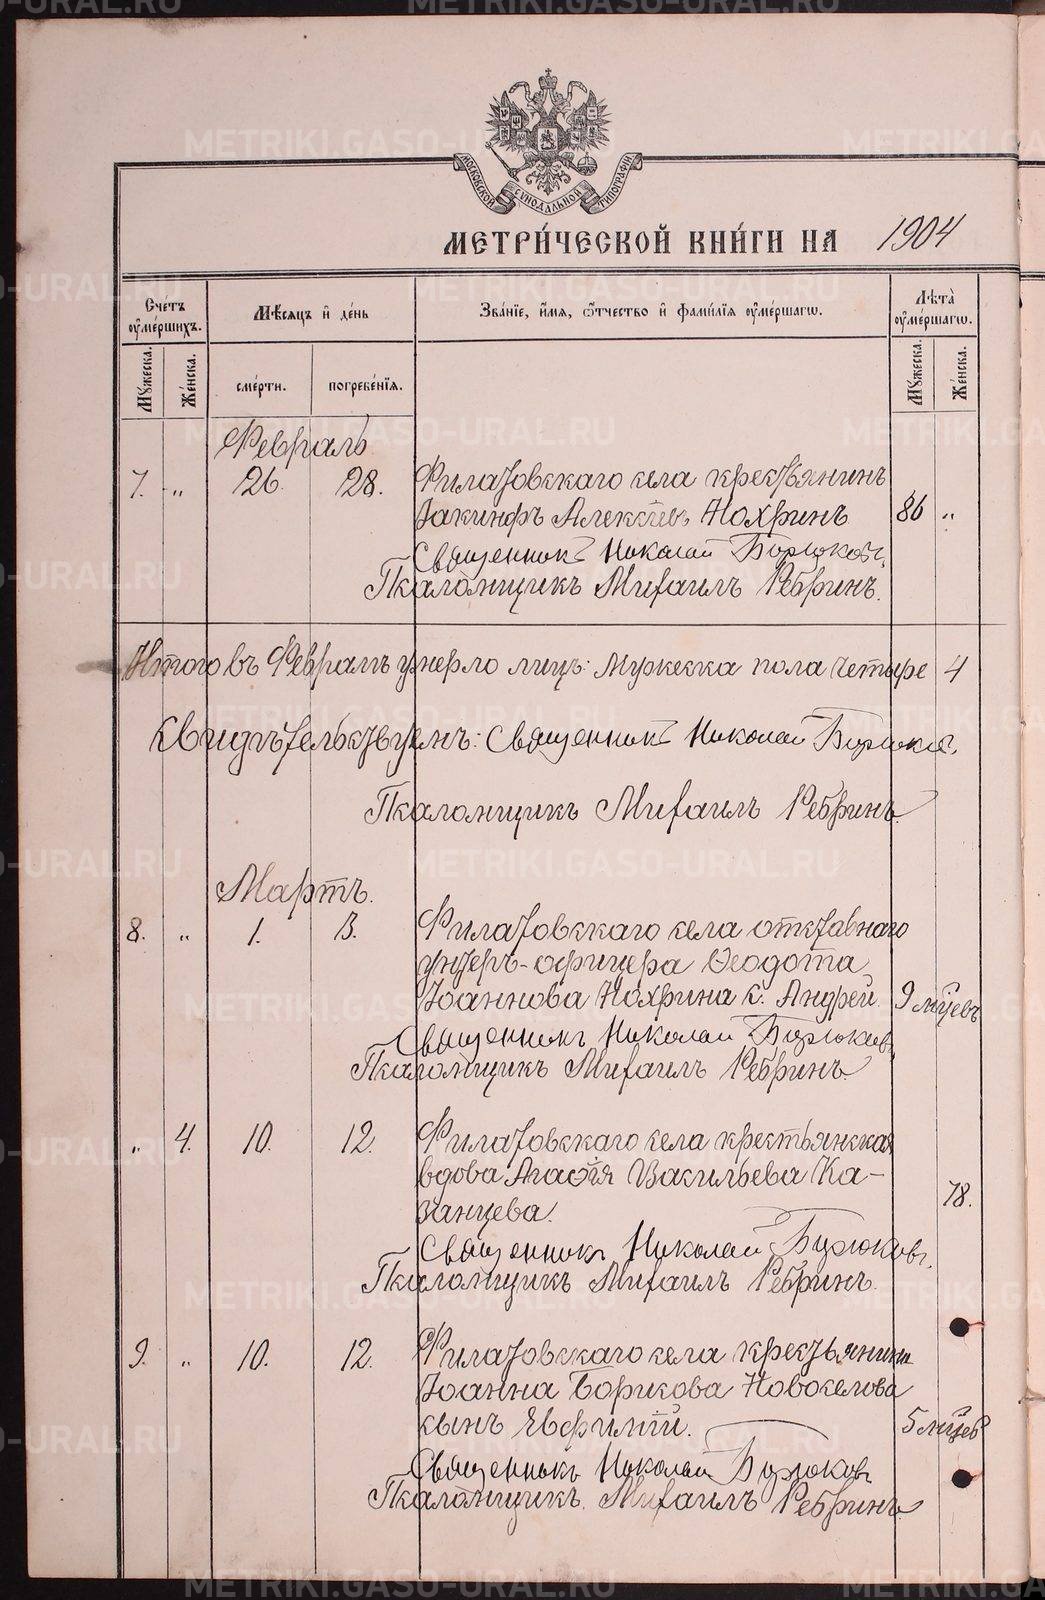 МОСКОВСКОЙ СѴНОДАЛЬНОЙ ТИПОГРАФИИ
МЕТРИ́ЧЕСКОЙ КНИ́ГИ НА 1904
Сче́тъ ᲂу҆ме́ршихъ.
Мѣ́сяцъ и҆ де́нь
Зва́нїе, и҆́мя, ѻ҆́тчество и҆ фами́лїя ᲂу҆ме́ршагѡ.
Лѣ́та ᲂу҆ме́ршагѡ.
Му́жеска.
Же́нска.
сме́рти.
погребе́нїѧ.
Му́жеска.
Же́нска.
Февраль
7. „ 26. 28. Филатовскаго села крестьянинъ
Іакинфъ Алексѣевъ Нохринъ 86 „
Священникъ Николай Бирюковъ.
Псаломщикъ Михаилъ Ребринъ.
Итого въ Февралѣ умерло лицъ: мужеска пола четыре 4
Свидѣтельствуемъ: Священникъ Николай Бирюковъ.
Псаломщикъ Михаилъ Ребринъ.
Мартъ.
8. „ 1. 3. Филатовскаго села отставнаго
унтеръ-офицера Ѳеодота
Іоаннова Нохрина с. Андрей. 9 мѣцевъ
Священникъ Николай Бирюковъ
Псаломщикъ Михаилъ Ребринъ.
„ 4. 10. 12. Филатовскаго села крестьянская
вдова Агаѳія Васильева Ка-
занцева. 78.
Священникъ Николай Бирюковъ.
Псаломщикъ Михаилъ Ребринъ.
9. „ 10. 12. Филатовскаго села крестьянина
Іоанна Борисова Новоселова
сынъ Евфимій. 5 мѣцев
Священникъ Николай Бирюковъ
Псаломщикъ Михаилъ Ребринъ
METRIKI.GASO-URAL.RU